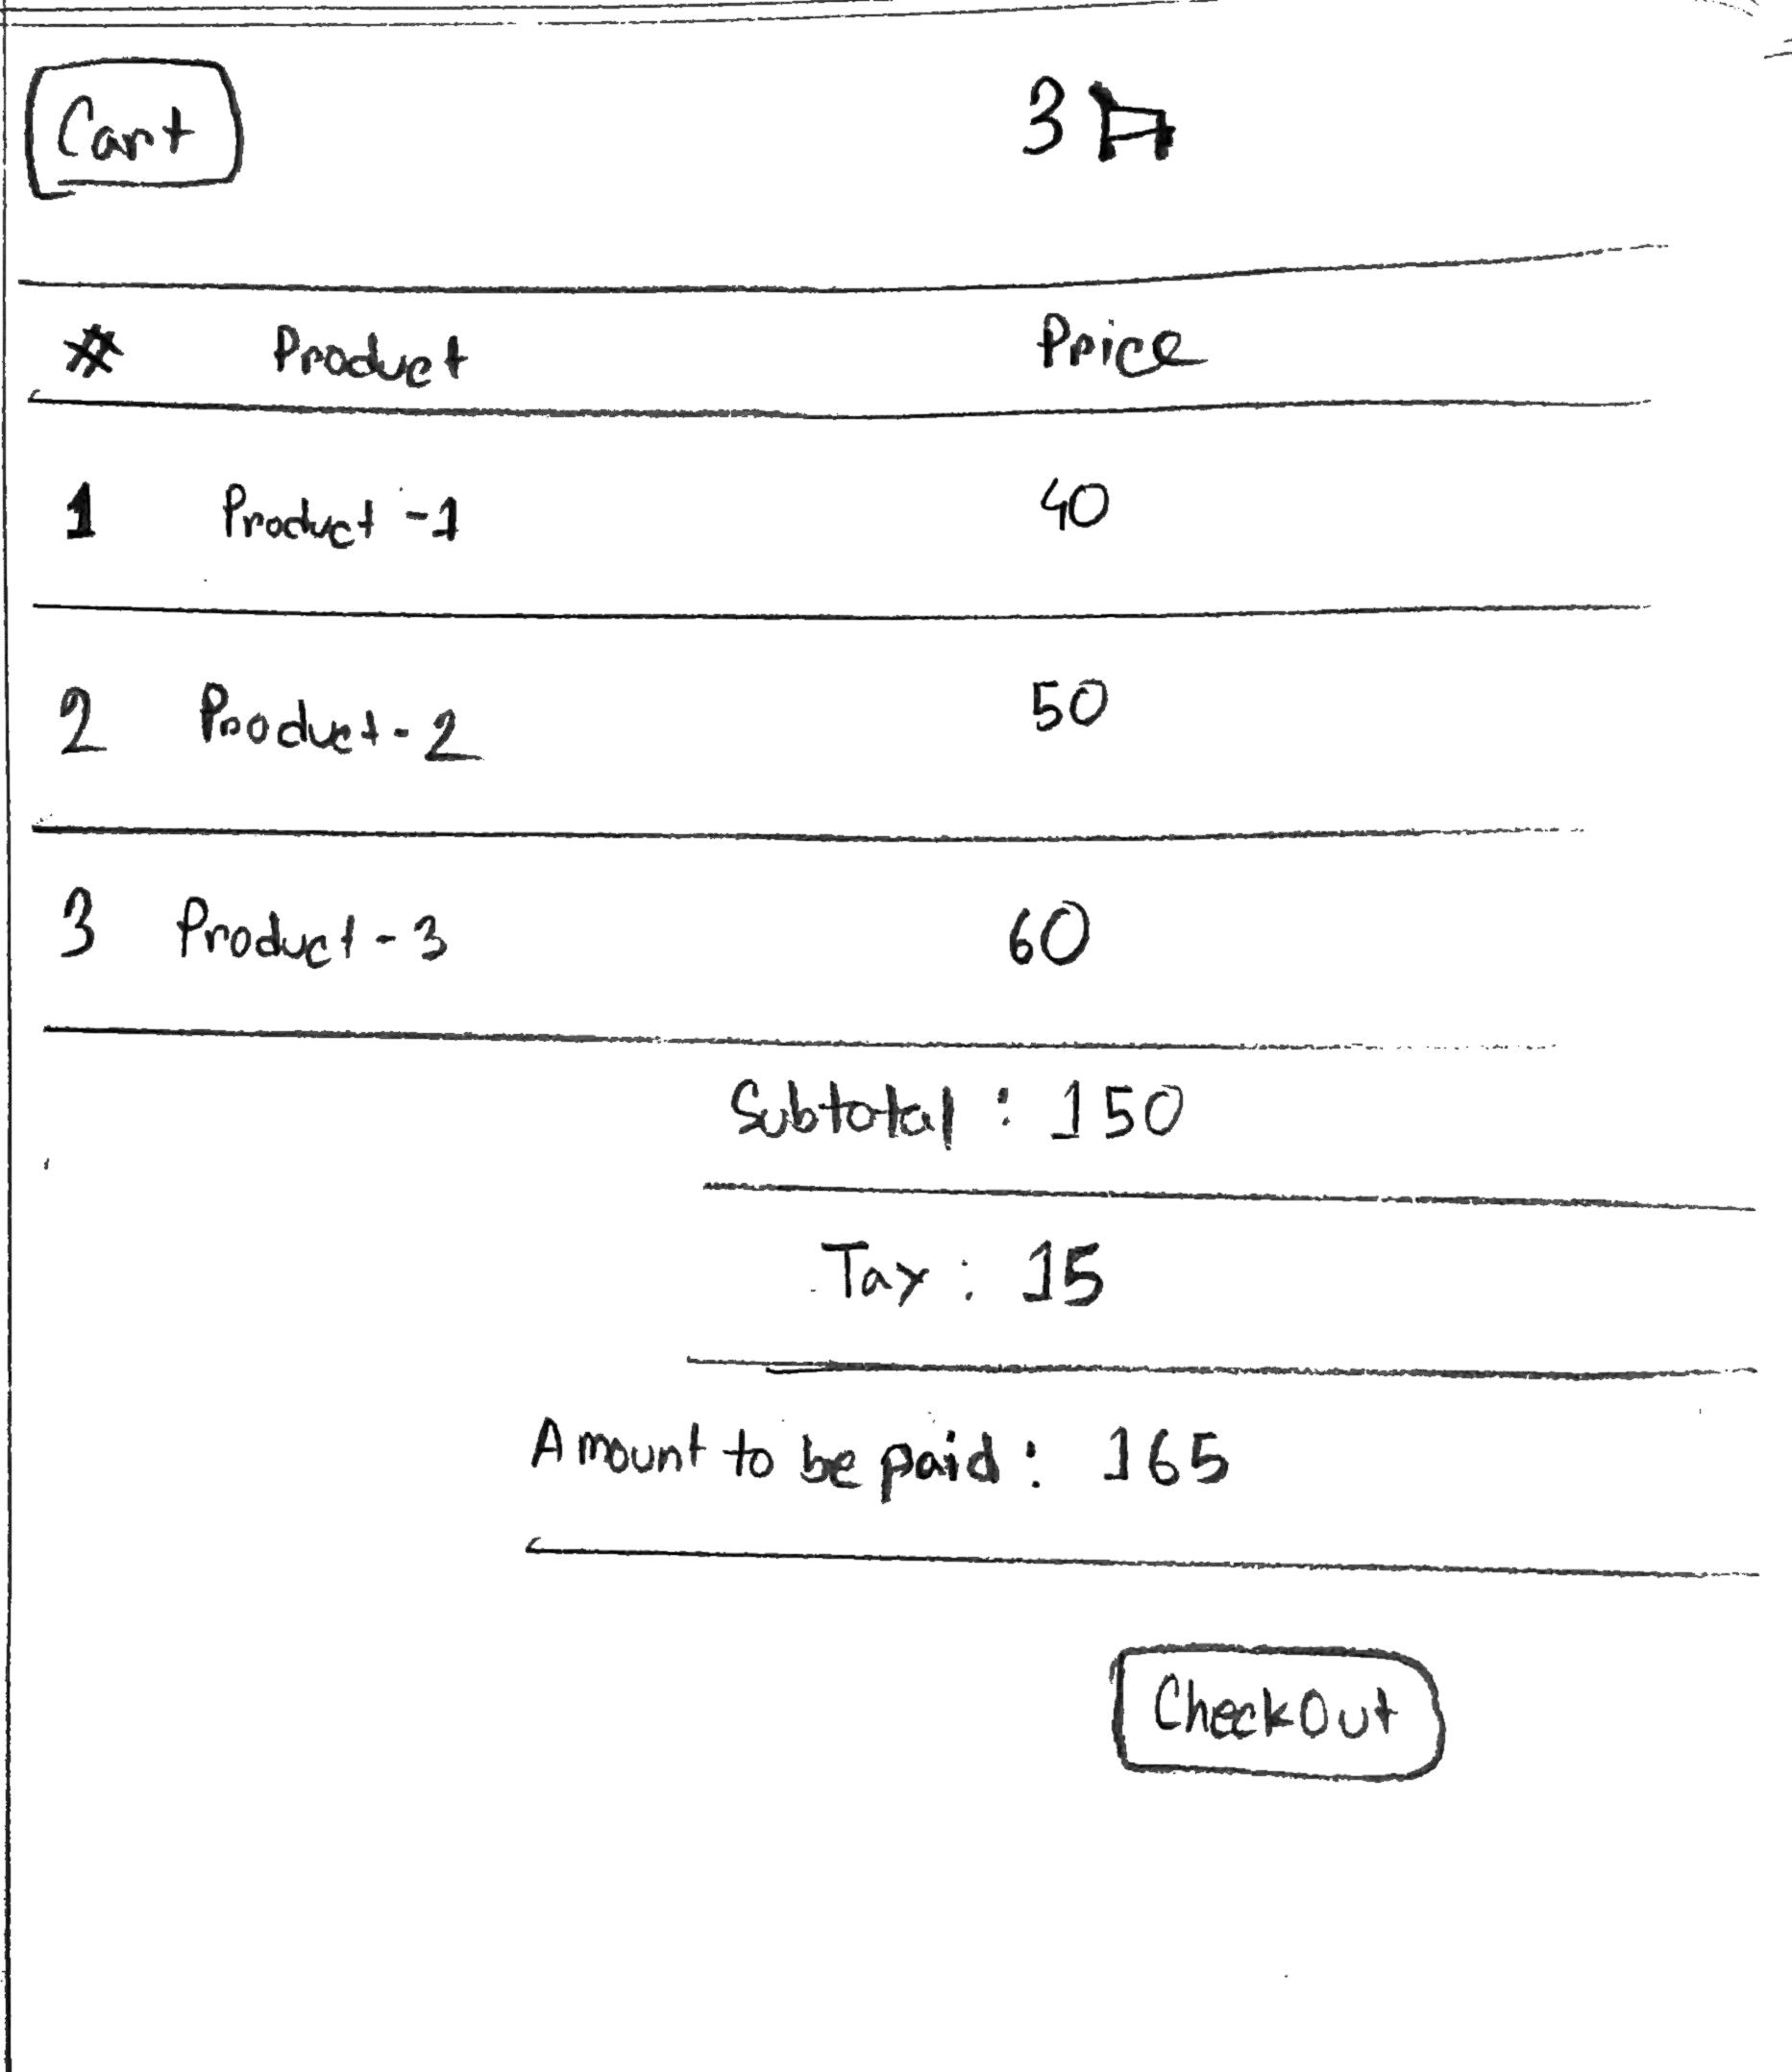 Cart
3
# Product Price
1 Product -1 40
2 Product - 2 50
3 Product - 3 60
Subtotal : 150
Tax : 15
Amount to be paid : 165
CheckOut